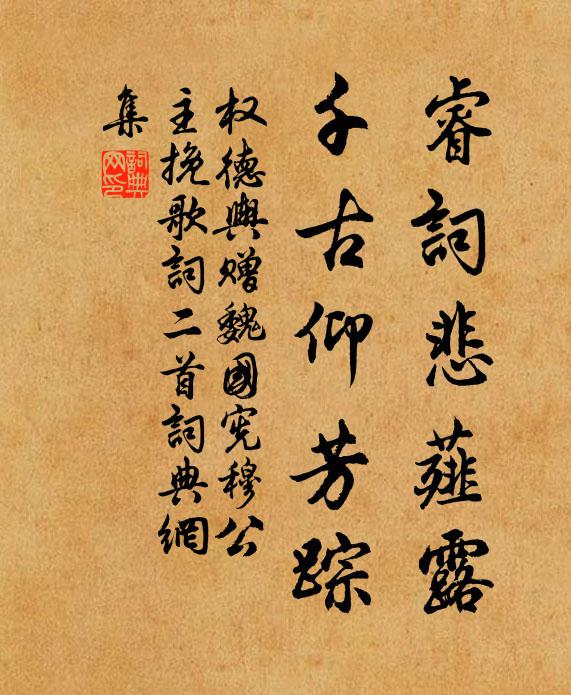 睿詞悲薤露
千古仰芳踪
权德輿赠魏國宪穆公
主挽歌詞二首詞典網
集
詞典
网印